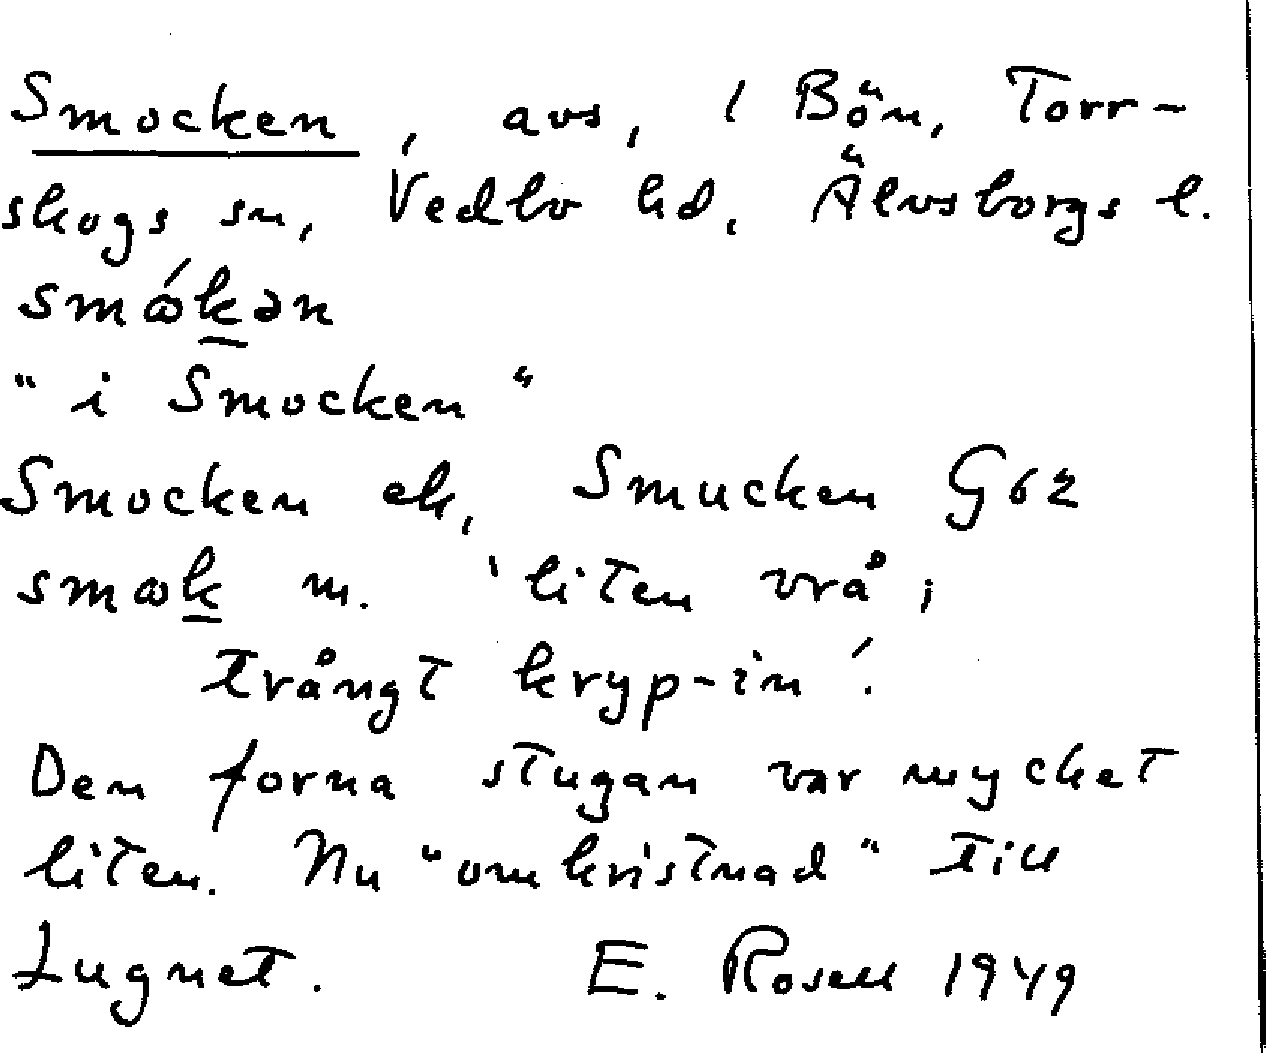 Smocken, avs, i Bön, Torr-
skogs sn, Vedbo hd, Älvsborgs l.
smɷ́k̲ən
"i Smocken"
Smocken ek, Smucken G62
smɷk̲ m. 'liten vrå;
trångt kryp-in'.
Den forna stugan var mycket
liten. Nu "omkristnad" till
Lugnet. E. Rosell 1949